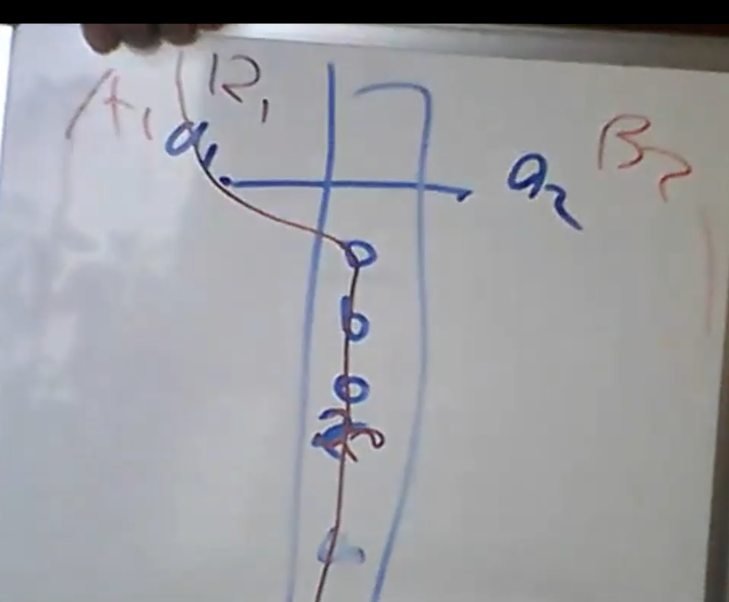 A₁ R₁
a₁ a₂ B₂